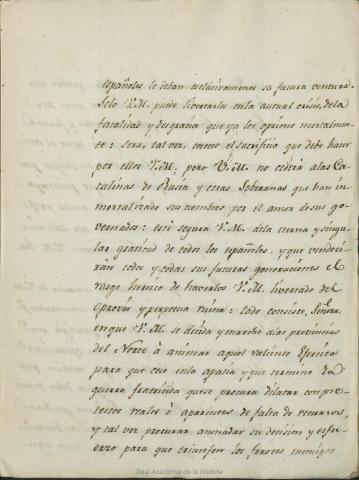 españoles le deban exclusivamente su futura ventura.
Solo V.M. puede libertarla en la actual crisis, de la
fatalidad y desgracia que ya los oprime mortalmen-
te: Sera, tal vez, cruel el sacrificio que debe hacer
por ellos V.M., pero V.M. no cederá a las Ca-
talinas de Rusia y otras Soberanas que han in-
mortalizado sus nombres, por el amor de sus go-
vernados: esté segura V.M. de la eterna y singu-
lar gratitud de todos los españoles, y que vendeci-
rán todos y todas sus futuras generaciones el
rasgo heroico de haverlos V.M. libertado del
oprovio y perpetua ruina: todo consiste, Señora,
en que V.M. se decida y marche a las provincias
del Norte à animar aquel valiente Ejercito
para que cese en la apatia y que termine la
guerra fratricida que se procura dilatar con pre-
testos reales ò aparentes de falta de recursos,
y tal vez procurar anonadar su decision y esfu-
erzo para que triunfen los feroces enemigos
Real Academia de la Historia